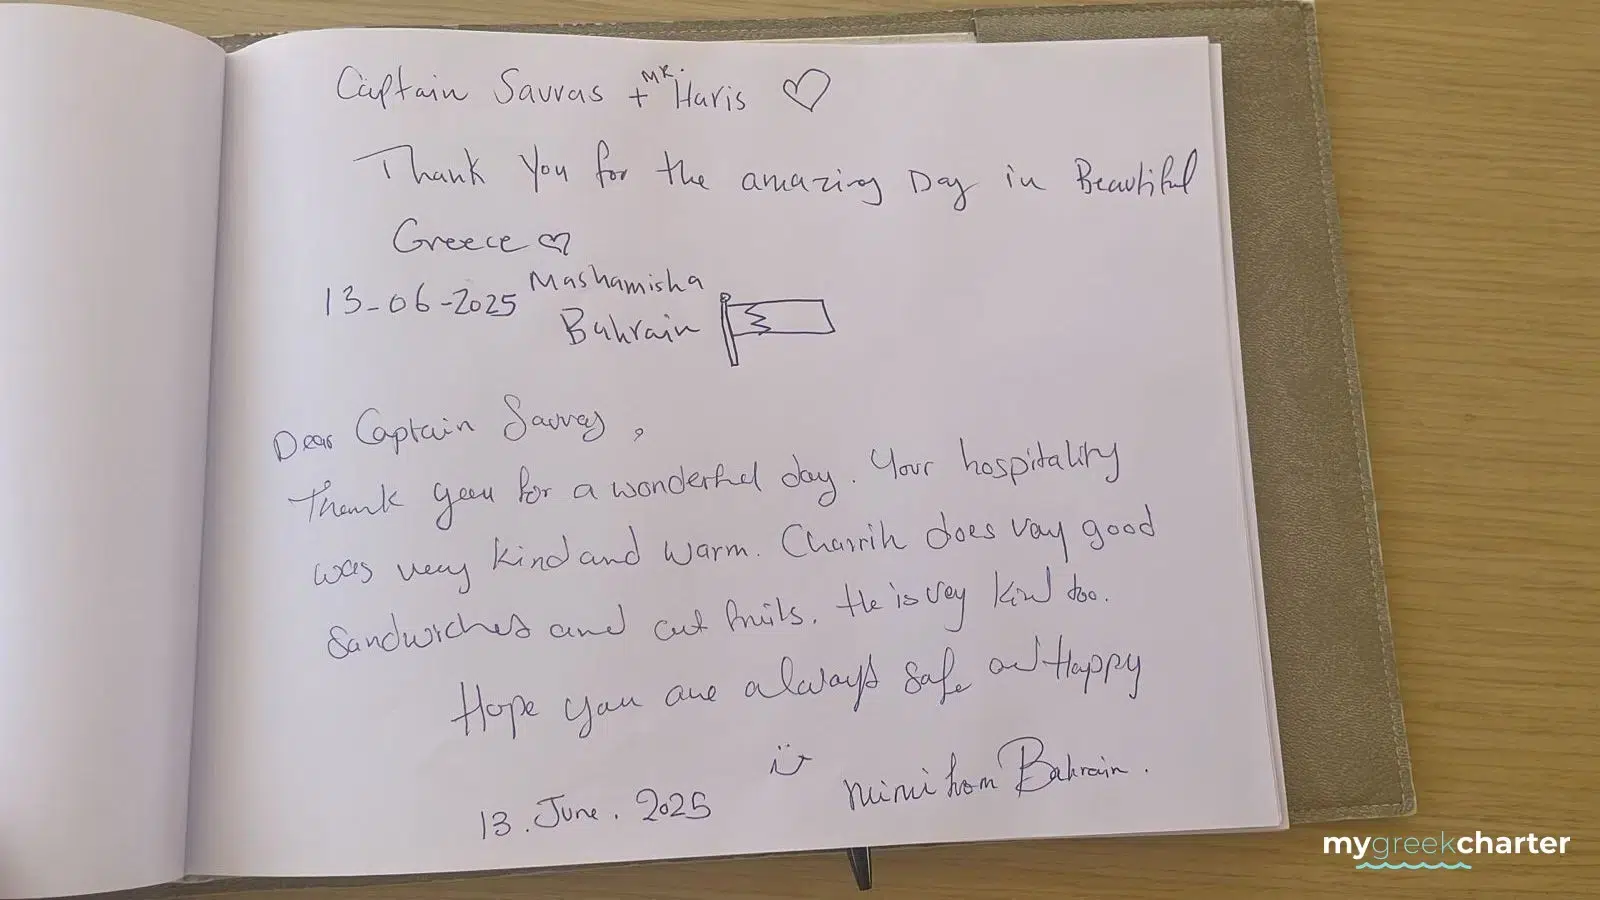 Captain Savvas + MR. Haris
Thank you for the amazing Day in Beautiful
Greece
13-06-2025 Mashamisha
Bahrain
Dear Captain Savvas,
Thank you for a wonderful day. Your hospitality
was very kind and warm. does very good
sandwiches and cut fruits. He is very kind too.
Hope you are always safe and Happy
13. June. 2025 Mimi from Bahrain.
mygreekcharter